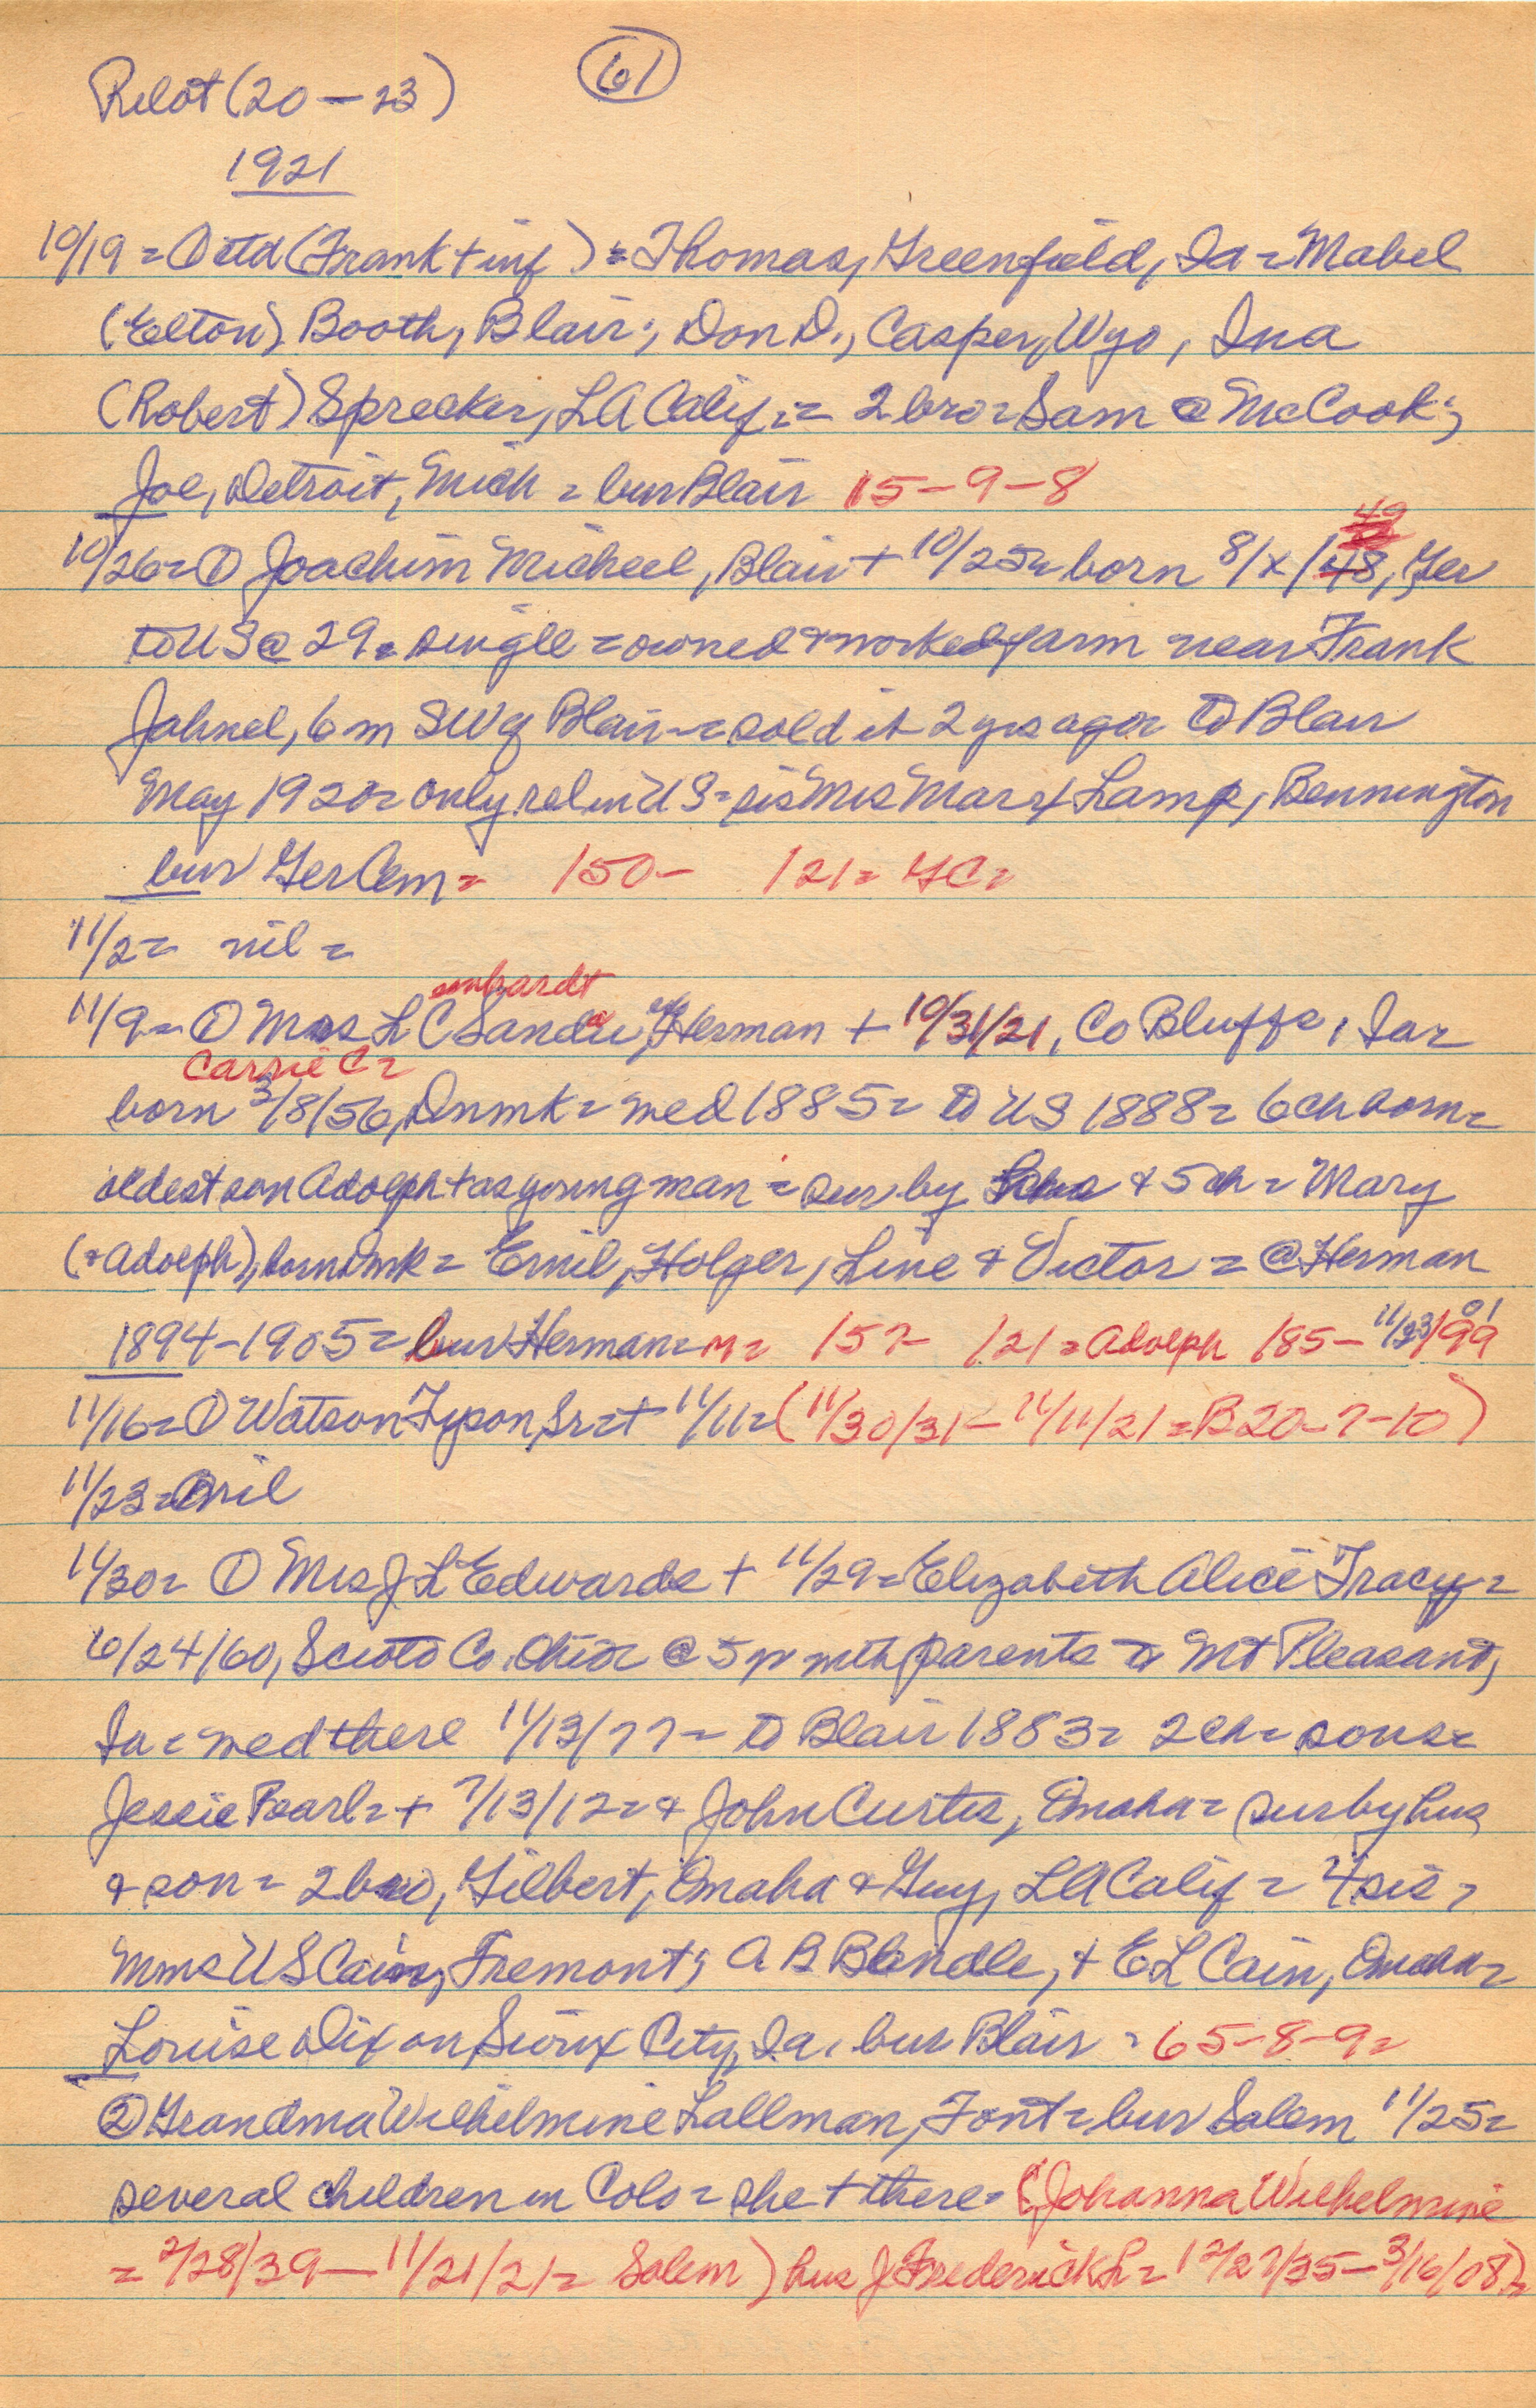 Pilot (20-23) 61
1921
10/19 = ① (Frank + inf) = Thomas, Greenfield, Ia = Mabel
(Elton) Booth, Blair; Don D., Casper, Wyo, Ina
(Robert) Sprecker, LA Calif = 2 bro = Sam @ McCook;
Joe, Detroit, Mich = bur Blair 15-9-8
49
10/26 = ① Joachim Micheel, Blair + 10/25 = born 8/x/48, Ger
to US @ 29 = single = owned & worked farm near Frank
Jahnel, 6 m SW of Blair = sold it 2 yrs ago = to Blair
May 1920 = only rel in US = sis Mrs Marx Lamp, Bennington
bur Ger Cem = 150- 121 = GC =
11/2 = nil =
11/9 = ① Mrs L C Herman + 10/31/21, Co Bluffs, Ia =
Carrie C =
born 3/8/56, Dnmk = med 1885 = to US 1888 = 6 ch born =
oldest son Adolph + as young man = sur by hus & 5 ch = Mary
(& Adolph), born Dmk = Emil, Holger, Line & Victor = @ Herman
1894-1905 = bur Herman = M = 157- 121 = Adolph 185- 11/23/99 01
11/16 = ① Watson Tyson, Sr = + 11/11 = (11/30/31- 11/11/21 = B20-7-10)
11/23 = ① nil
11/30 = ① Mrs J L Edwards + 11/29 = Elizabeth Alice Tracy =
6/24/60, Scioto Co, Ohio = @ 5 yr with parents to Mt Pleasant,
Ia = med there 11/13/77 = to Blair 1883 = 2 ch = sons =
Jessie Pearl = + 7/13/12 = & John Curtis, Omaha = sur by hus
& son = 2 bro, Gilbert, Omaha & Guy, LA Calif = 4 sis =
Mmes U S Cain, Fremont; A B Blendle, & E L Cain, Omaha =
Louise Dixon, Sioux City, Ia, bur Blair = 65-8-9 =
② Grandma Wilhelmine Lallman, Font = bur Salem 11/25 =
several children in Colo = she + there = (Johanna Wilhelmine
= 2/28/39 - 11/21/21 = Salem) hus J Frederick L = 12/27/35 - 3/16/08) =